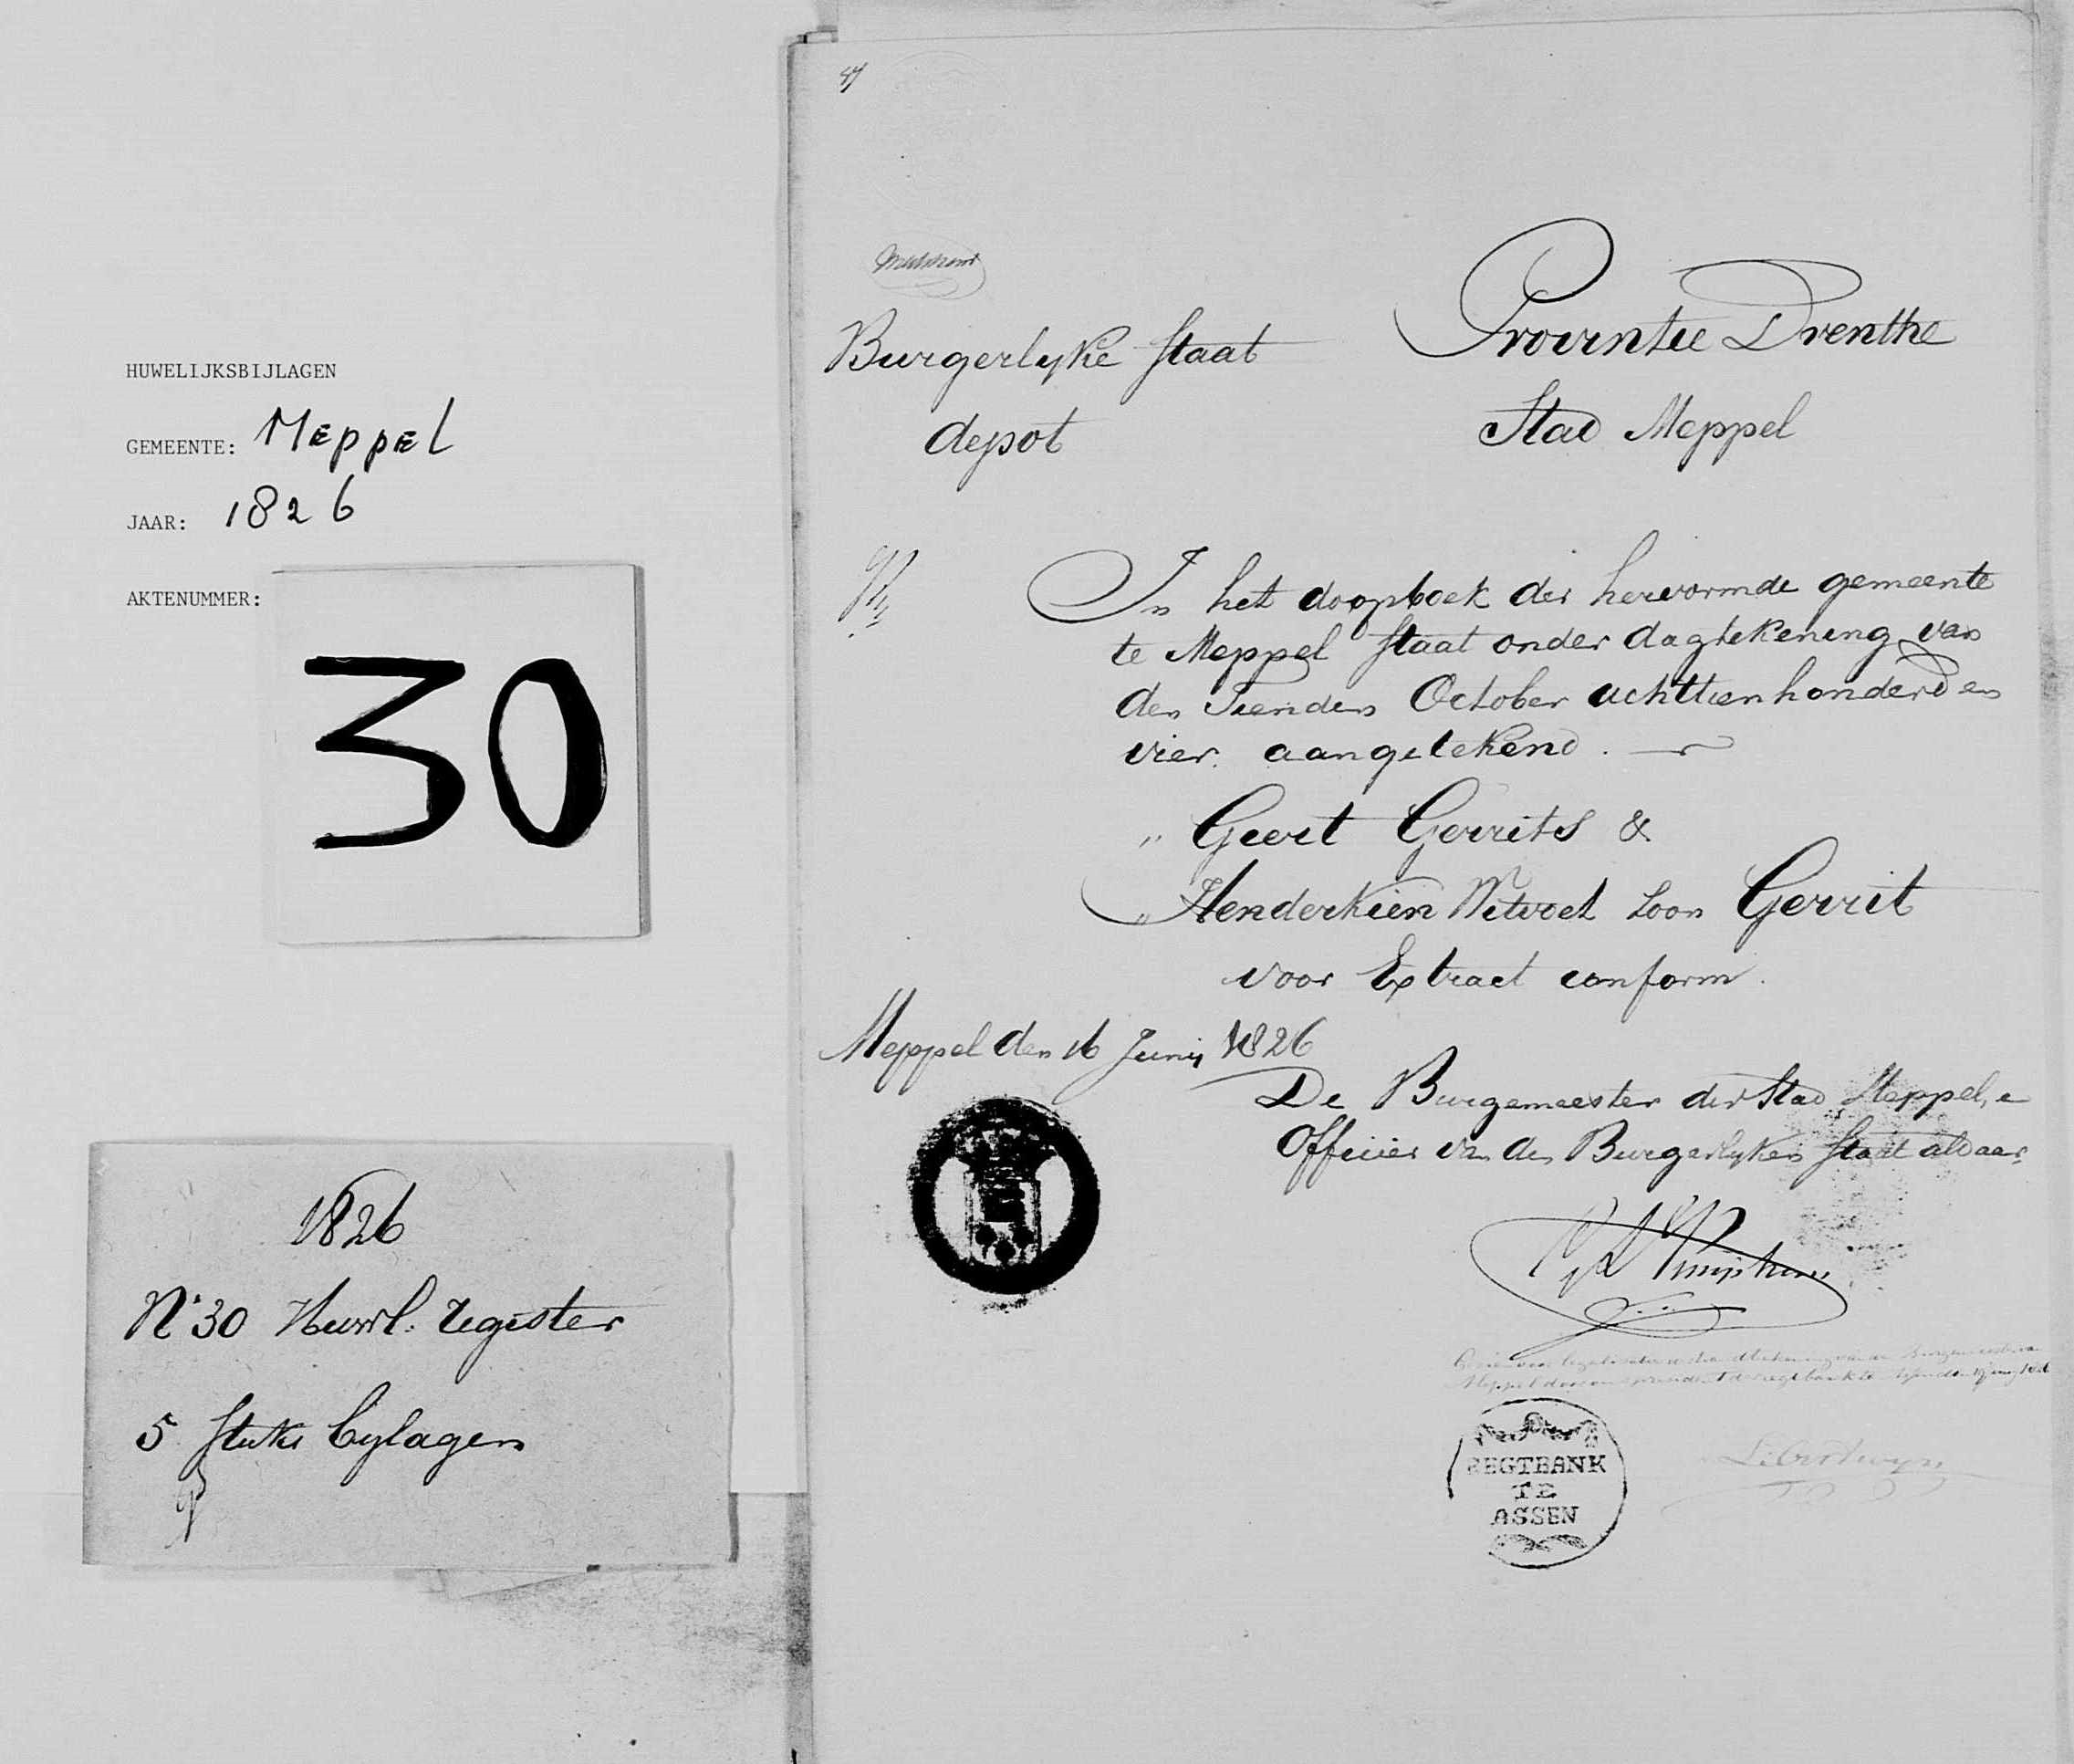 HUWELIJKSBIJLAGEN
GEMEENTE: Meppel
JAAR: 1826
AKTENUMMER:
30
1826
N° 30 Huwl. register
5 stuks bylagen
Burgerlyke Staat
depot
Provintie Drenthe
Stad Meppel
In het doopboek der hervormde gemeente
te Meppel staat onder dagtekening van
den Tienden October achttienhonderd en
vier aangetekend.
" Geert Gerrits &
" Henderkien Witvoet zoon Gerrit
voor Extract conform.
Meppel den 16 Junij 1826
De Burgemeester der Stad Meppel,
Officier van den Burgerlyken Staat aldaar.
REGTBANK
TE
ASSEN